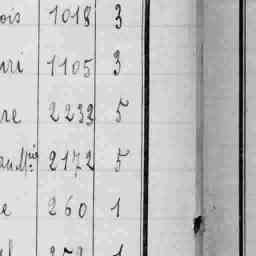 ois 1018 3
nri 1105 3
re 2232 5
an Mie 2172 5
e 260 1